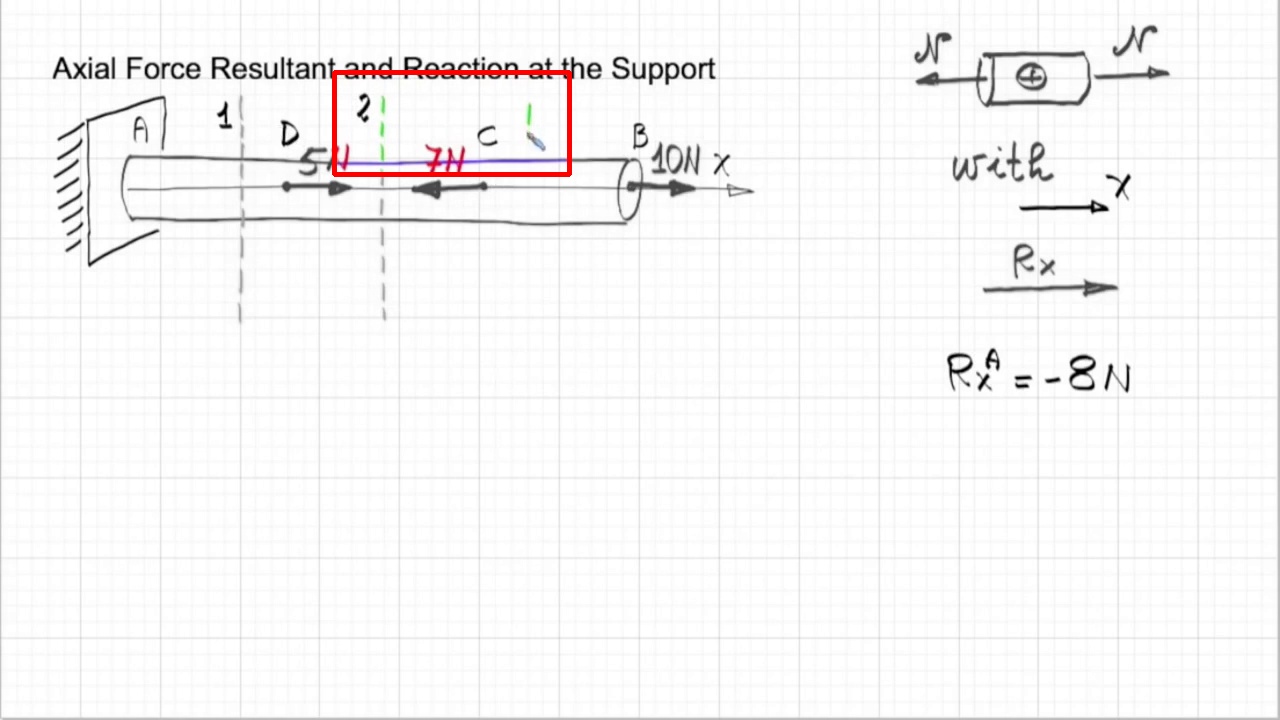 Axial Force Resultant and Reaction at the Support
N N
+
1 2
A D C B
5N 7N 10N x
with
x
Rx
RxA = -8N